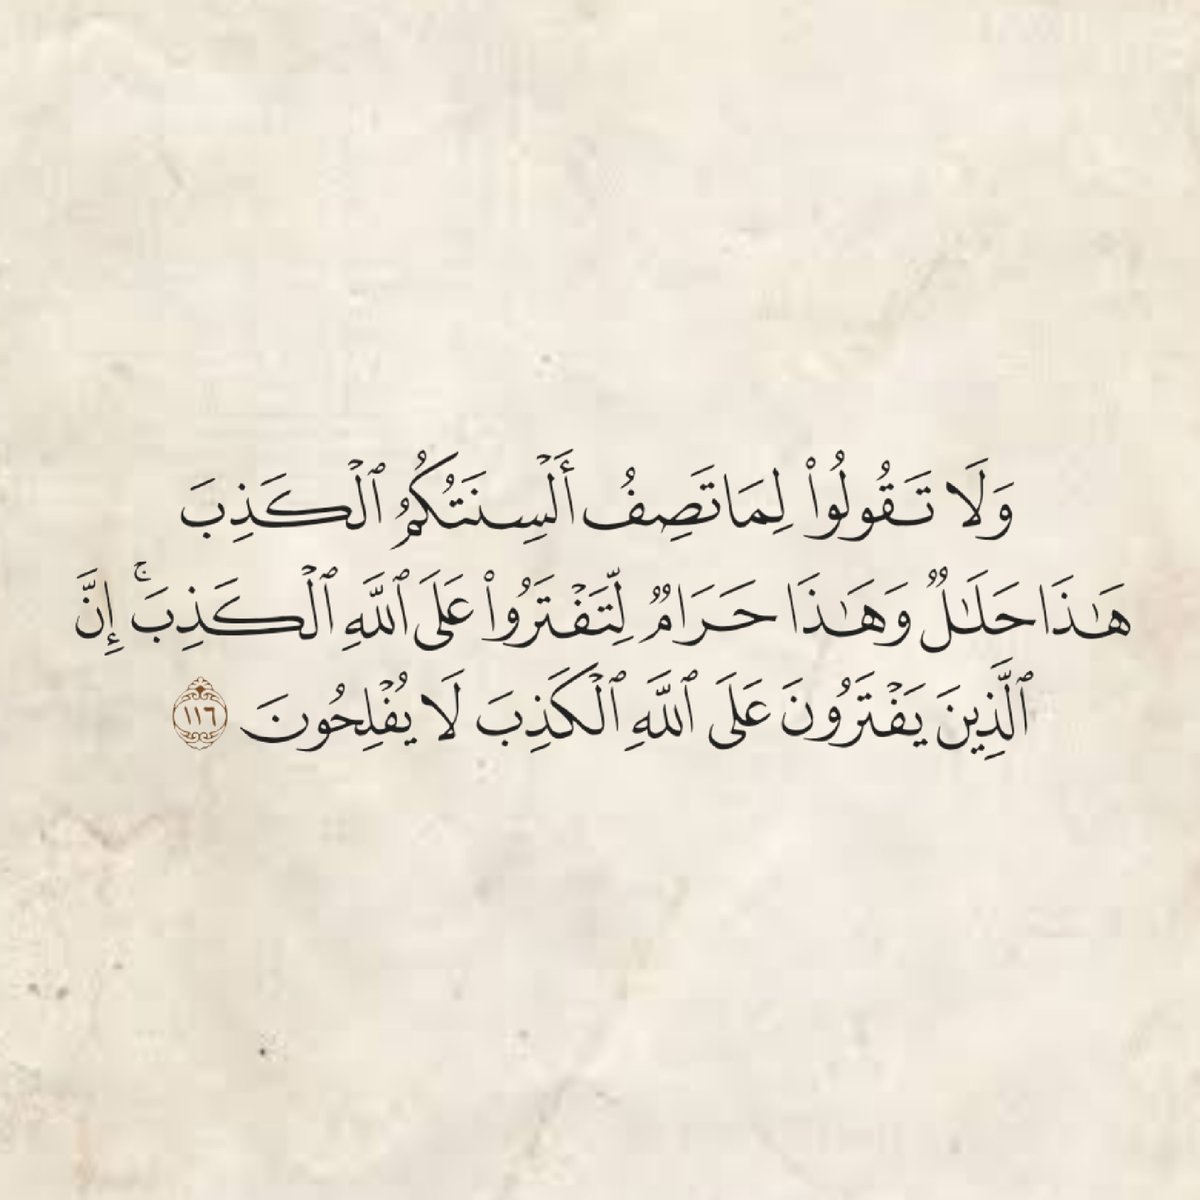 وَلَا تَقُولُوا۟ لِمَا تَصِفُ أَلْسِنَتُكُمُ ٱلْكَذِبَ
هَـٰذَا حَلَـٰلٌ وَهَـٰذَا حَرَامٌ لِّتَفْتَرُوا۟ عَلَى ٱللَّهِ ٱلْكَذِبَ ۚ إِنَّ
ٱلَّذِينَ يَفْتَرُونَ عَلَى ٱللَّهِ ٱلْكَذِبَ لَا يُفْلِحُونَ ١١٦